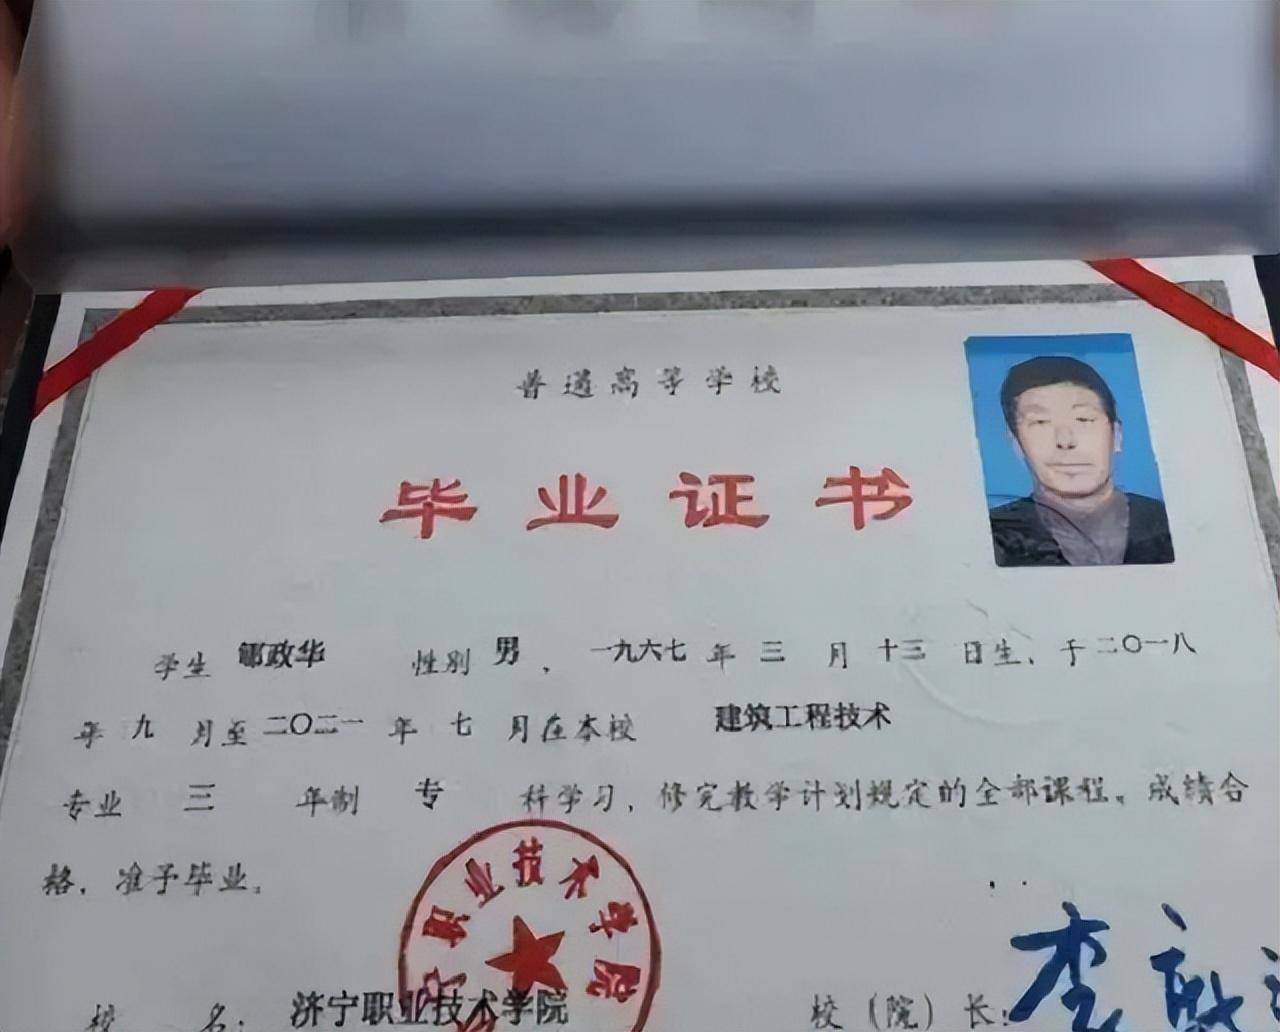 普通高等学校
毕业证书
学生 郇政华 性别 男 ，一九六七 年 三 月 十三 日生，于二〇一八
年 九 月至 二〇二一 年 七 月在本校 建筑工程技术
专业 三 年制 专 科学习，修完教学计划规定的全部课程，成绩合
格，准予毕业。
宁职业技术学院
校 名：济宁职业技术学院
校（院）长：